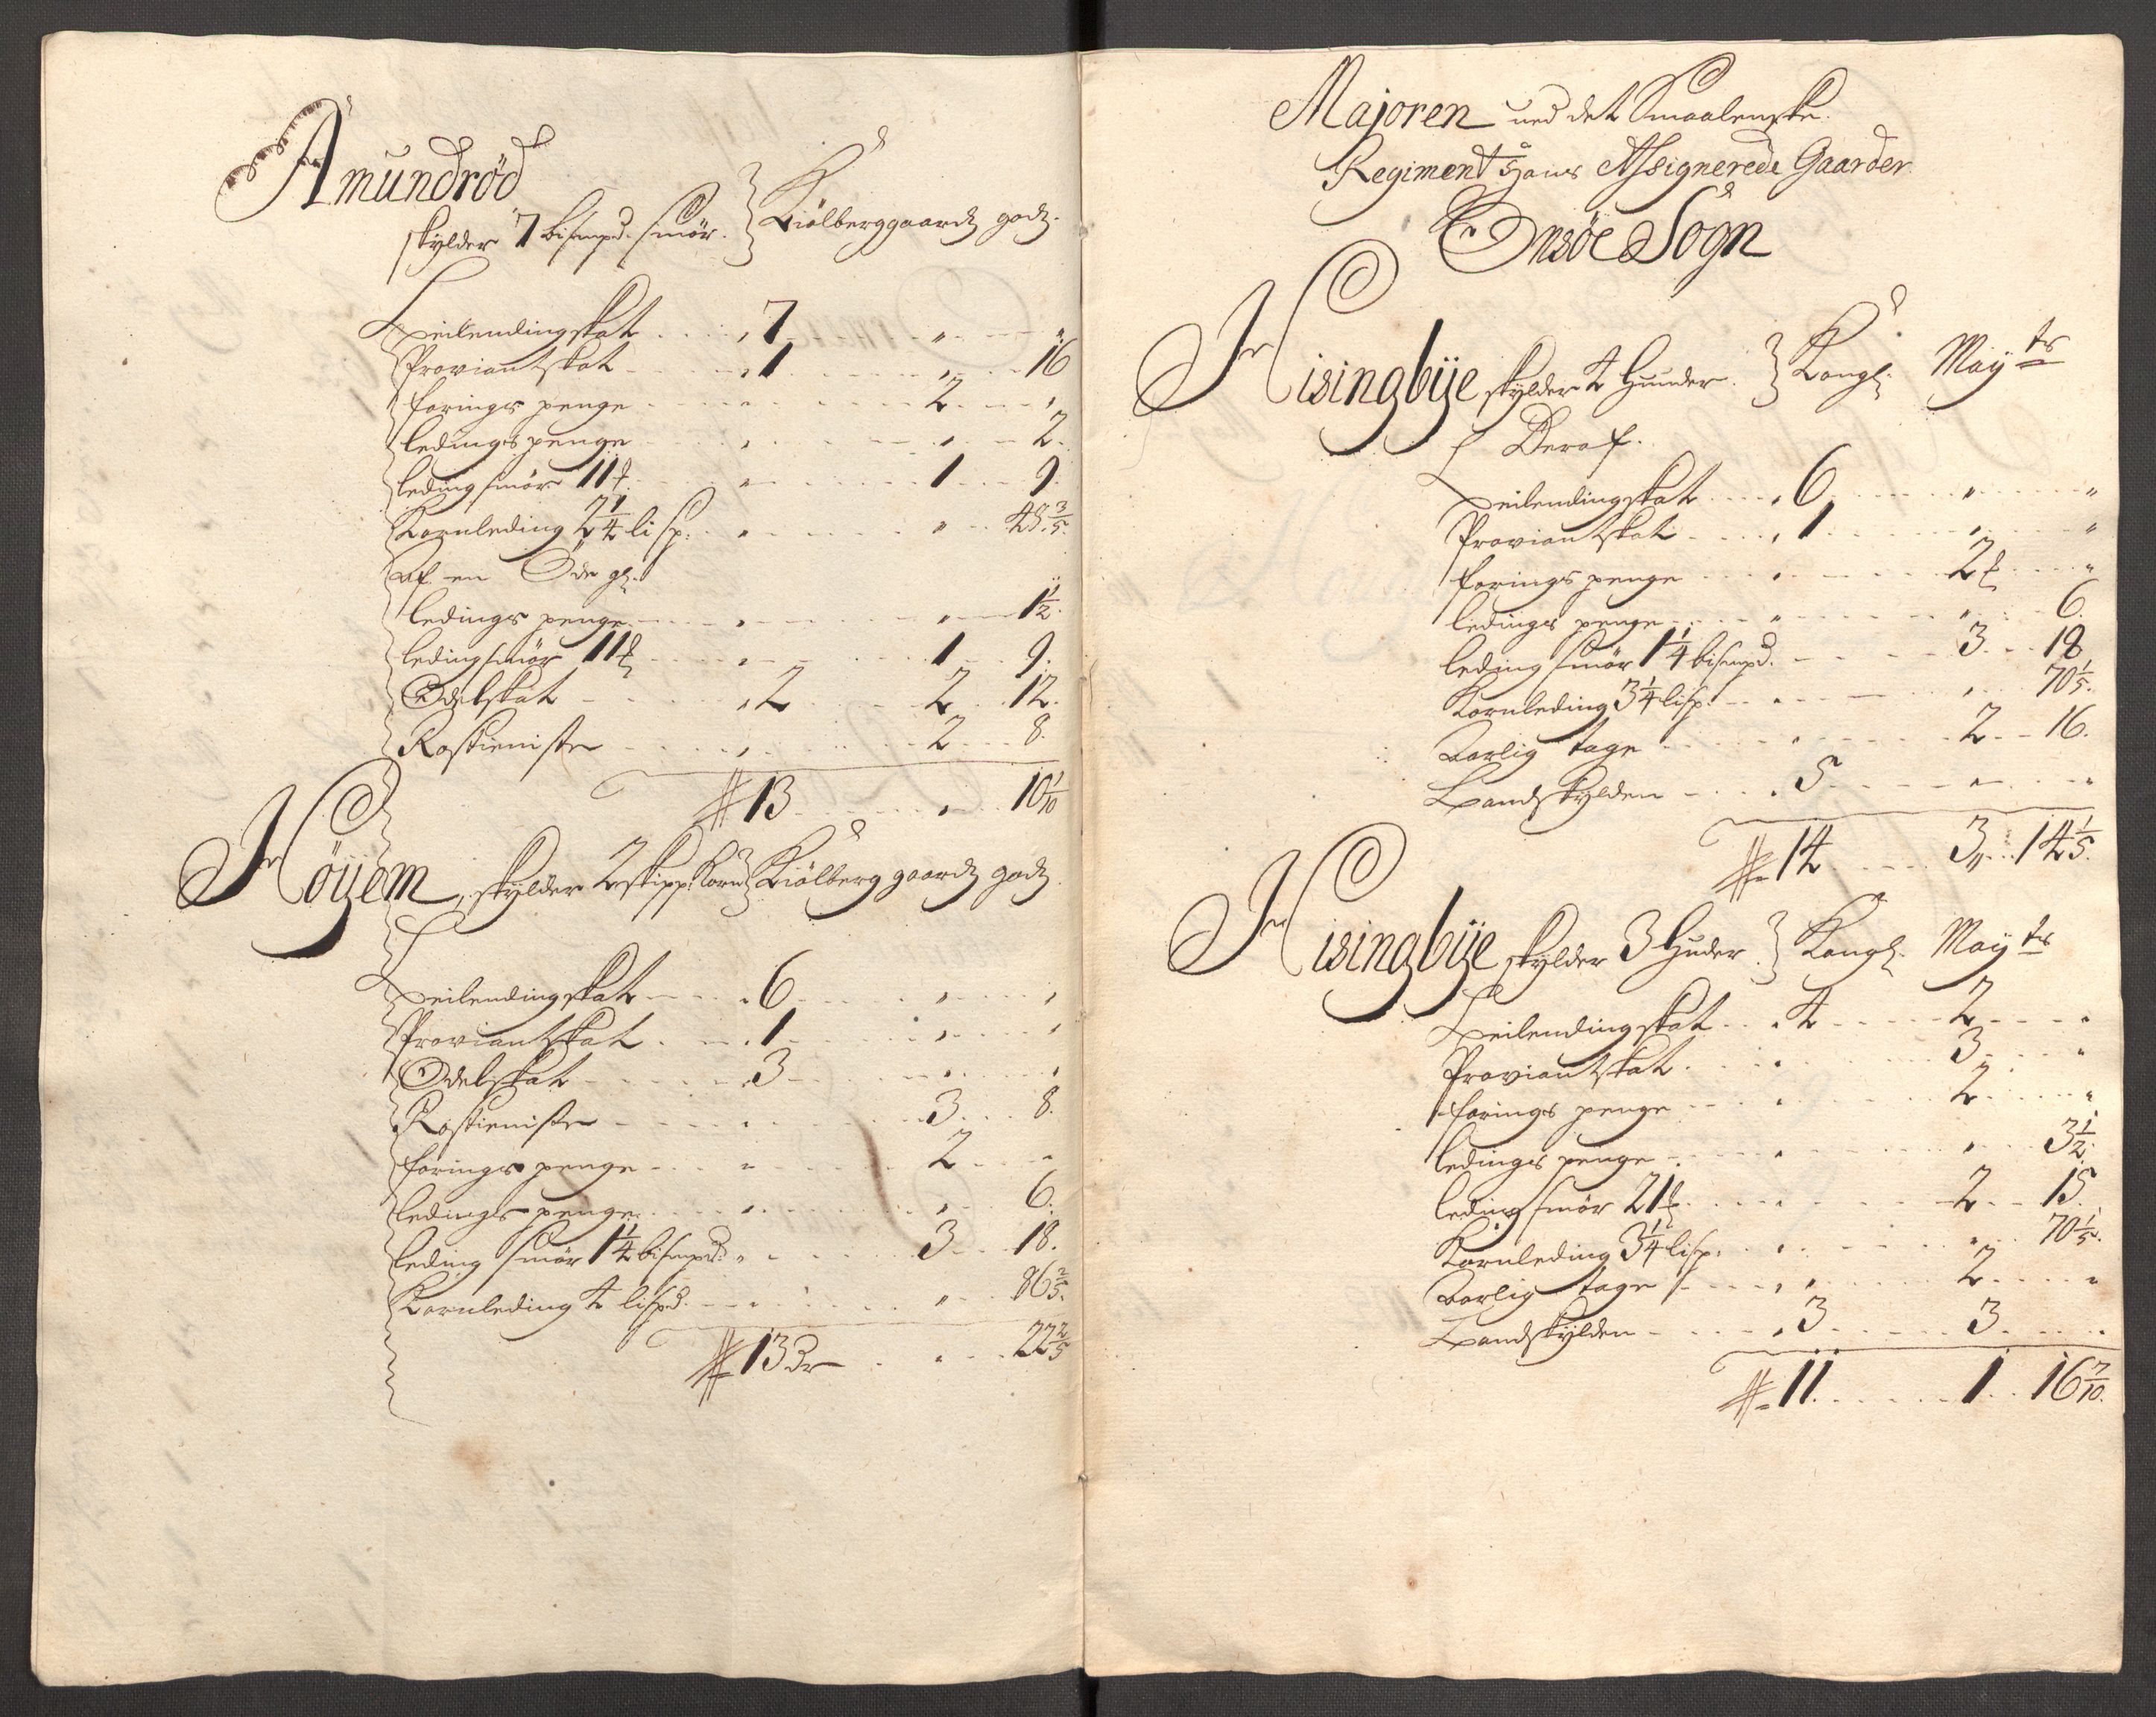 Amundrød
skylder 7 bismpd. smør. } Kiølberggaardz godz.
Leilendingskat 7 " "
Proviantskat 1 " 16
forings penge " 2 "
ledings penge " " 2.
leding smør 11 ℔ " 1 9.
Kornleding 2 1/4 lisp. " " 48 3/5.
Af en Øde gl.
ledings penge " " 1 1/2.
leding smør 11 ℔ " 1 9.
Odelskat 2 2 12.
Rostieniste " 2 8.
13 " 10 1/10
Høyem, skylder 2 skipp. Korn } Kiølberggaardz godz
Leilendingskat 6 " "
Proviantskat 1 " "
Odelskat 3 " "
Rostieniste " 3 8.
forings penge " 2 "
ledings penge " " 6.
leding smør 1 1/4 bismpd. " 3 18.
Kornleding 4 lispd. " " 86 2/5.
13 Dr " 22 2/5
Majoren ved det Smaalenske
Regiment Hans Assignerede Gaarder
Onsøe Sogn
Hisingbye skylder 4 Huuder. } Kongl. Mayts
Deraf.
Leilendingskat 6 " "
Proviantskat 1 " "
forings penge " 2 "
ledings penge " " 6.
leding smør 1 1/4 bismpd. 3 18
Kornleding 3 1/4 lisp. " " 70 1/5.
Aarlig tage " 2 16.
Landskylden 5 " "
14 3 14 1/5.
Hisingbye skylder 3 Huder } Kongl. Mayts
Leilendingskat 4 2 "
Proviantskat " 3 "
forings penge " 2 "
ledings penge " " 3 1/2.
leding smør 21 ℔ " 2 15.
Kornleding 3 1/4 lisp. " " 70 1/5.
Aarlig tage " 2 "
Landskylden 3 3 "
11 1 16 7/10.